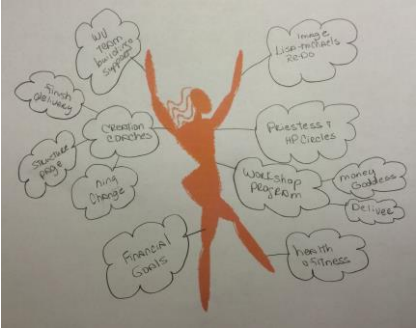 WV
Team
building
support
image
Lisa-michaels
Re-Do
Finish
delivery
Creation
coaches
Priestess &
HP Circles
Structure
page
Ning
Change
Workshop
program
money
Goddess
Deliver
Financial
Goals
health
& fitness